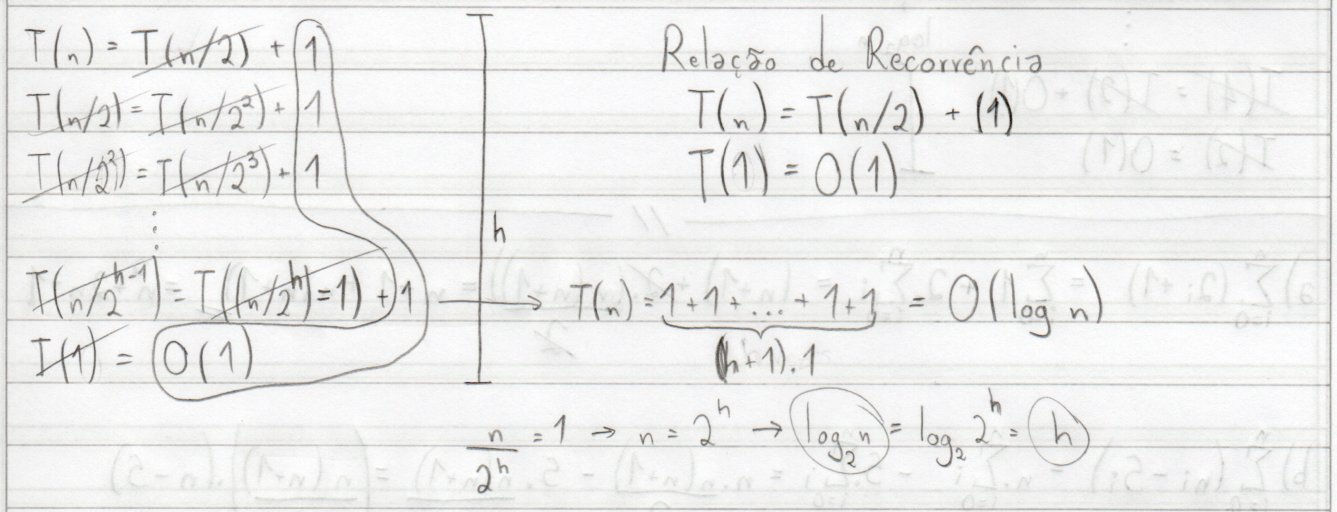 T(n) = T(n/2) + 1
T(n/2) = T(n/2²) + 1
T(n/2²) = T(n/2³) + 1
⋮
T(n/2^(h-1)) = T((n/2^h)=1) + 1
T(1) = O(1)
h
Relação de Recorrência
T(n) = T(n/2) + (1)
T(1) = O(1)
→ T(n) = 1+1+...+1+1 = O(log n)
(h+1).1
n/2^h = 1 → n = 2^h → log₂ n = log₂ 2^h = h